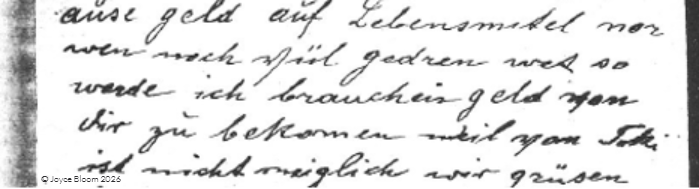 ause geld auf Lebensmitel nor
wen noch viil gedren wet so
werde ich brauchein geld von
dir zu bekomen weil von Toki
ist nicht meiglich wir grüsen
© Joyce Bloom 2026